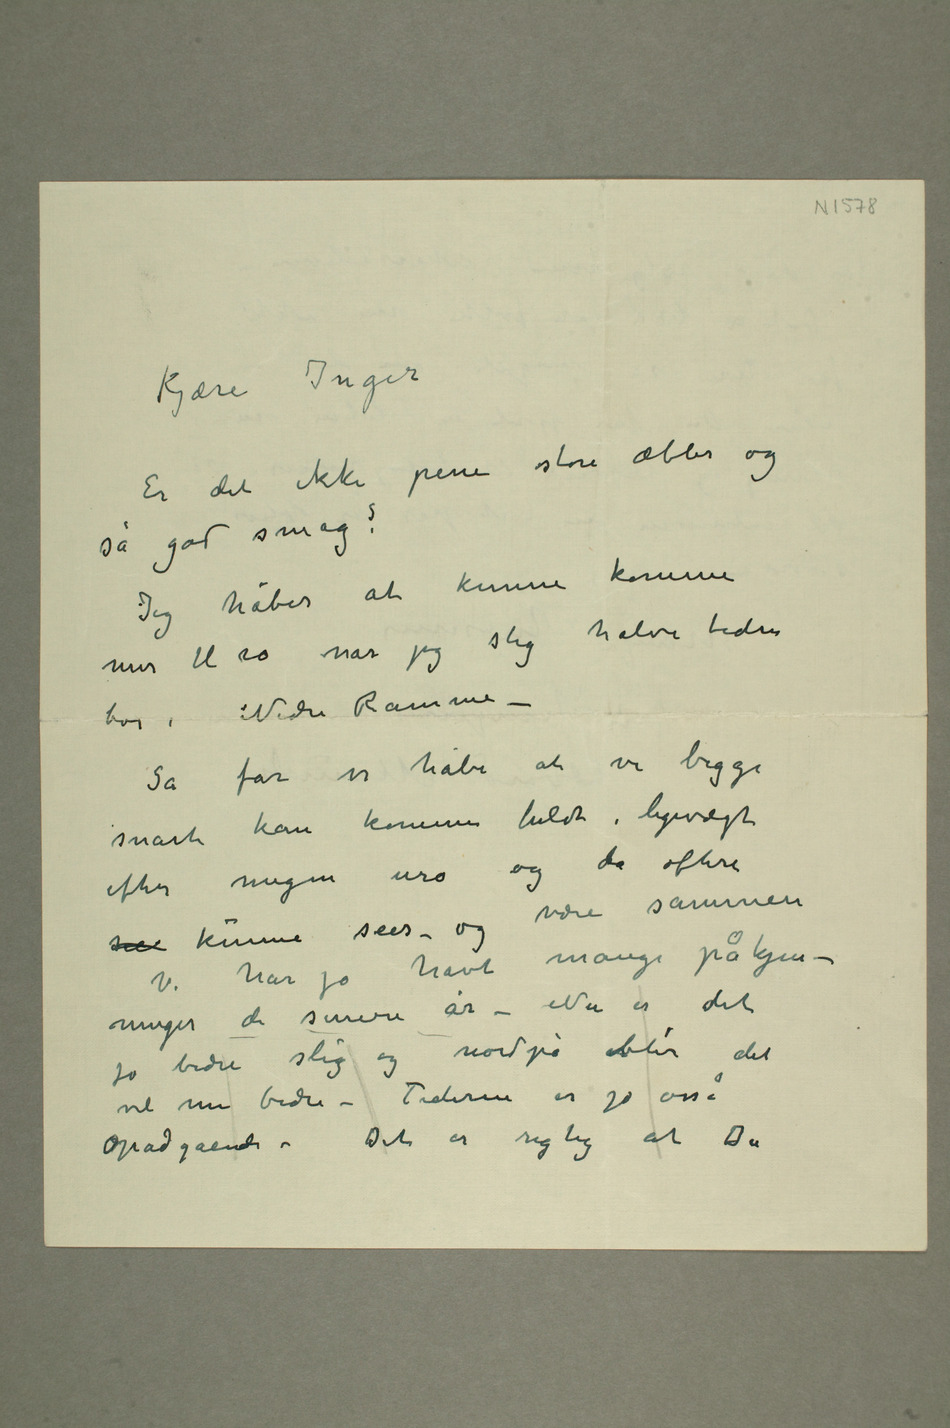 N1578
Kjære Inger
Er det ikke pene store æbler og
så god smag?
Jeg håber at kunne komme
mer til ro når jeg slig halve tiden
bor i Nedre Ramme –
Så får vi håbe at vi begge
snart kan komme fuldt i ligevægt
efter megen uro og da oftere
see kunne sees – og være sammen
Vi har jo havt mange påkjen–
ninger de senere år – Nu er det
jo bedre slig og nordpå blir det
vel nu bedre – Tiderne er jo også
opadgående – Det er rigtig at Du